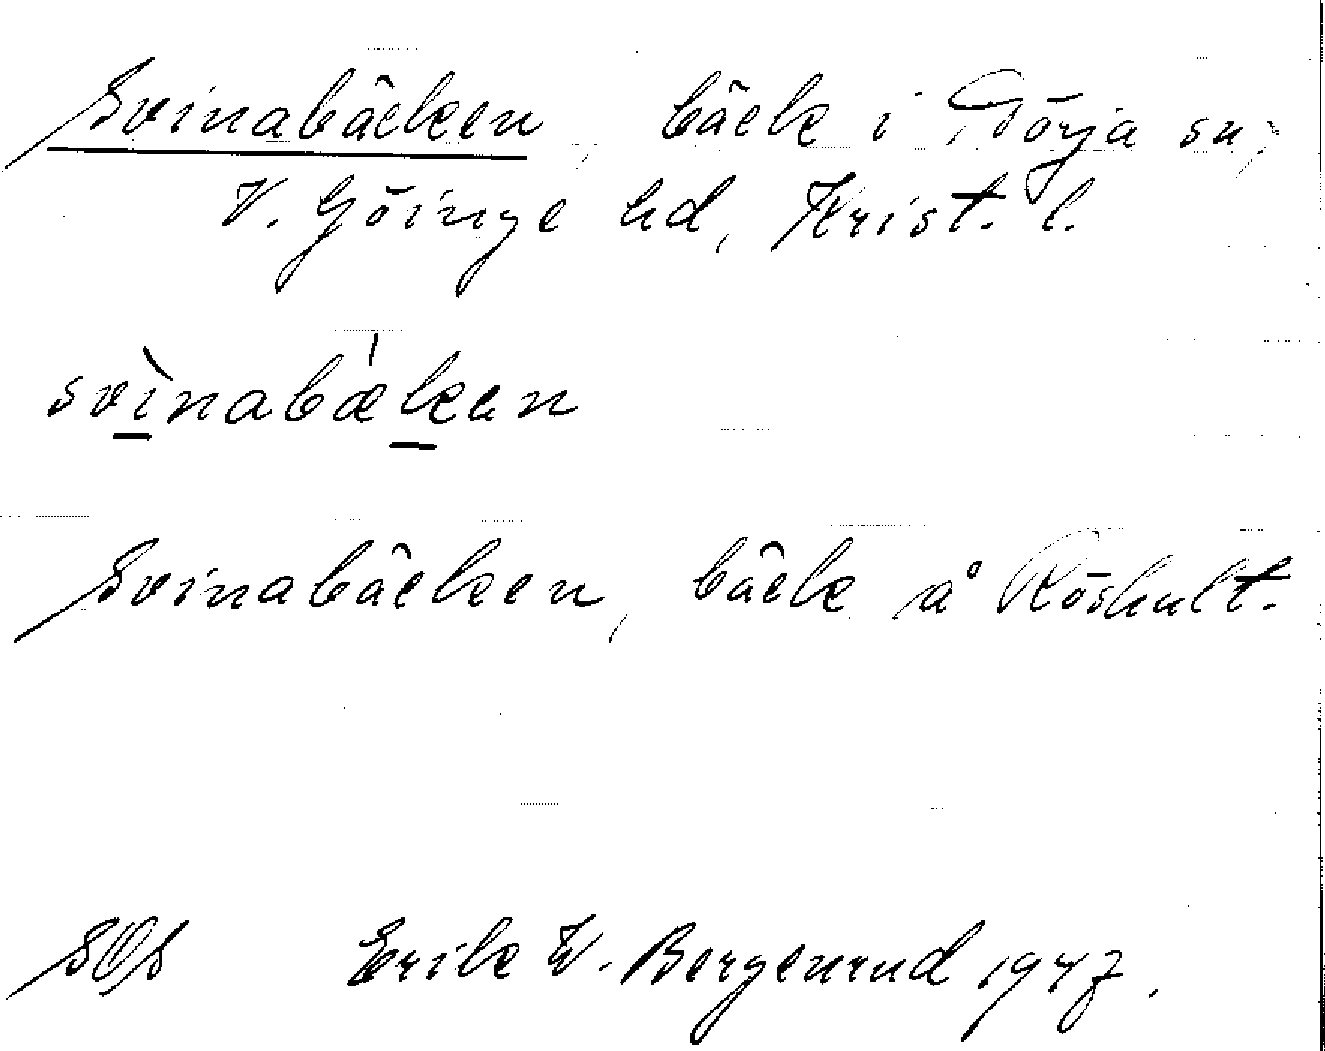 Svinabäcken, bäck i Förja sn,
V. Göinge hd, Krist. l.
svìnabæken
Svinabäcken, bäck å Röshult.
SOS Erik W. Bergenrud 1947.